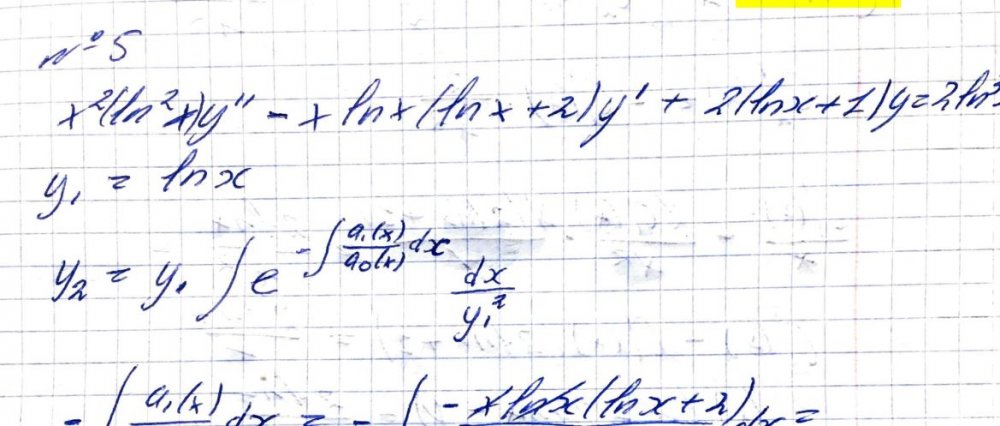 № 5
x²(ln²x)y'' - x lnx (lnx + 2)y' + 2(lnx + 1)y = 2ln³
y₁ = lnx
y₂ = y₁ ∫ e^(-∫ a₁(x)/a₀(x) dx) dx/y₁²
- ∫ a₁(x) dx = - ∫ -x lnx (lnx + 2) dx =